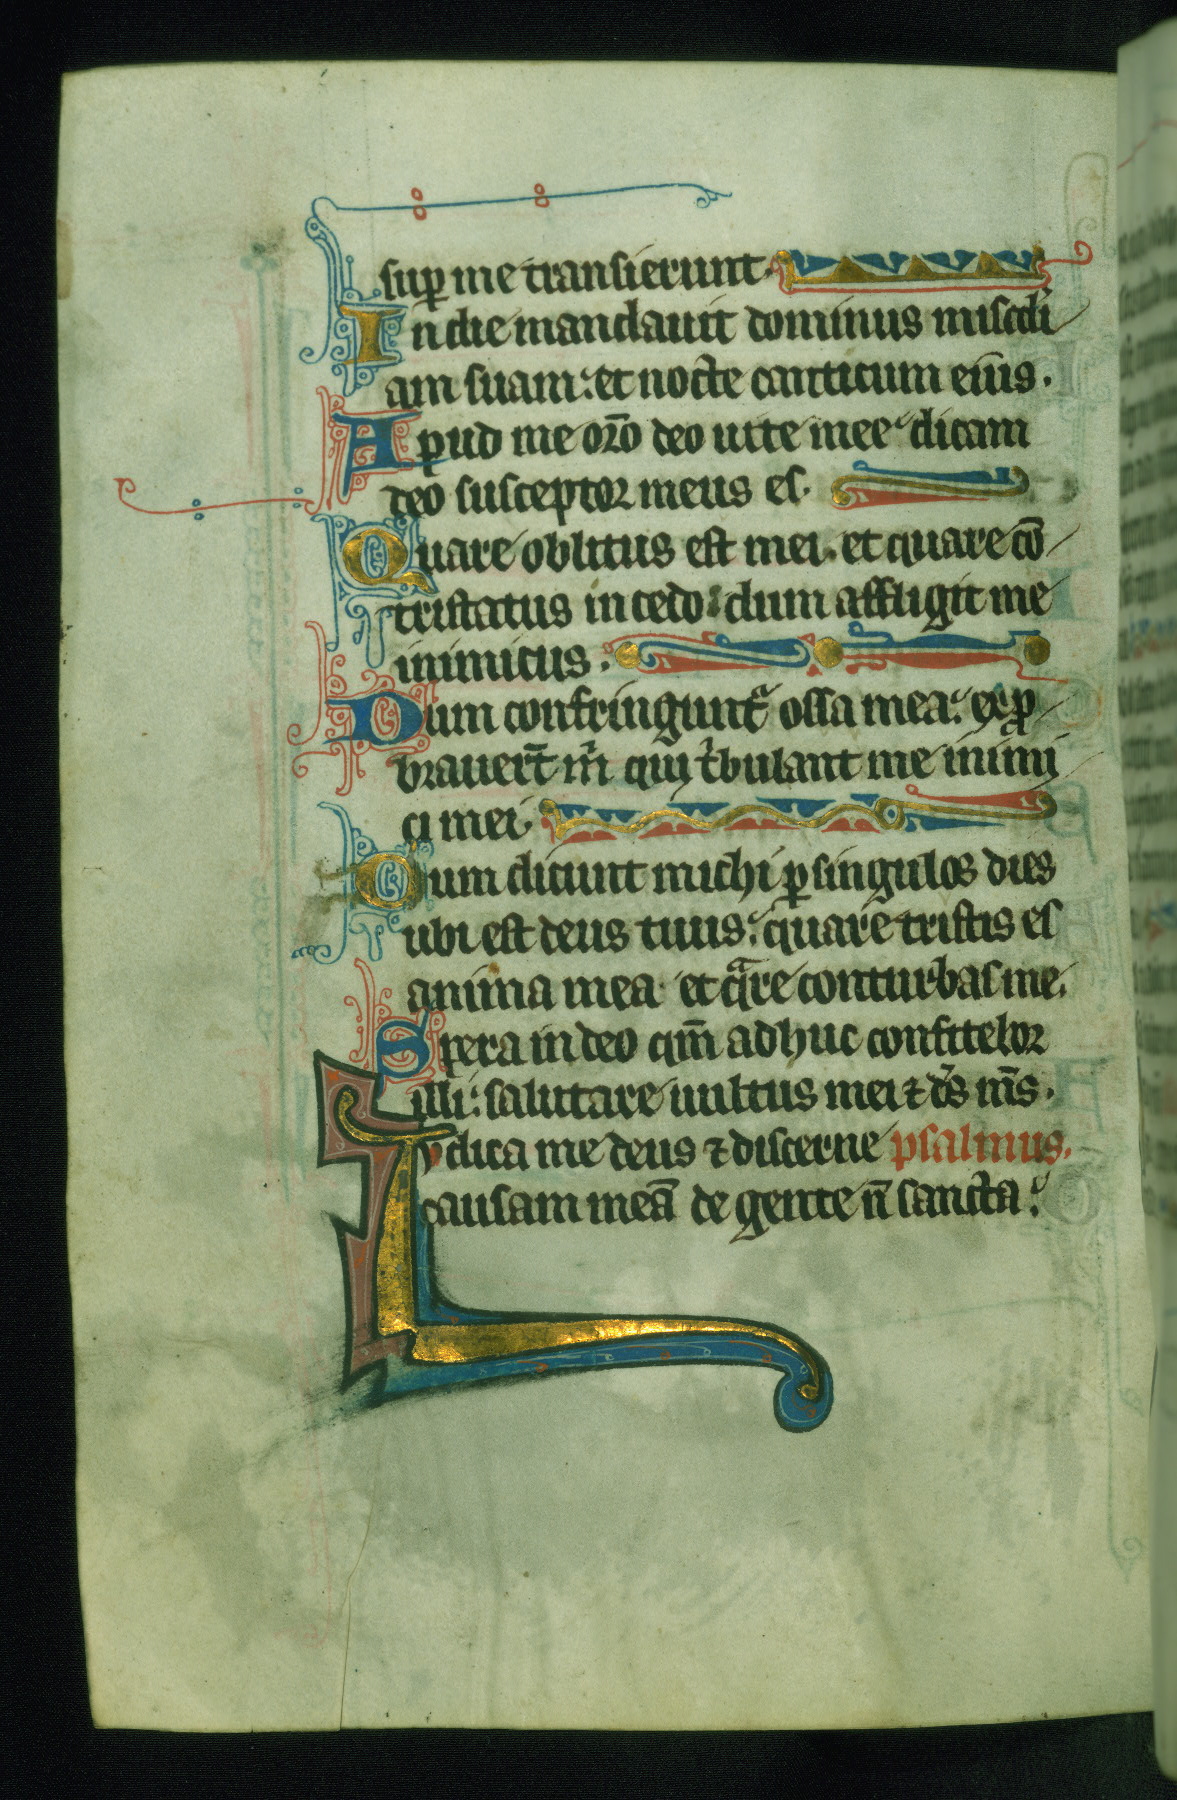 sup̱ me transierunt.
In die mandauit dominus mis̄cdi
am suam: et nocte canticum eius.
Apud me or̄o deo uite mee: dicam
deo susceptor meus es.
Quare oblitus est mei. et quare cō
tristatus incedo: dum affligit me
inimicus.
Dum confringunt᷑ ossa mea: exp̱
brauer̄t m̄ qui t͛bulant me inimi
ci mei.
Cum dicunt michi p̱ singulos dies
ubi est deus tuus: quare tristis es
anima mea et qᷓre conturbas me.
Spera in deo qm̄ adhuc confitebor
illi: salutare uultus mei ⁊ d̄s m̄s.
Iudica me deus ⁊ discerne psalmus.
causam meā de gente n̄ sancta: